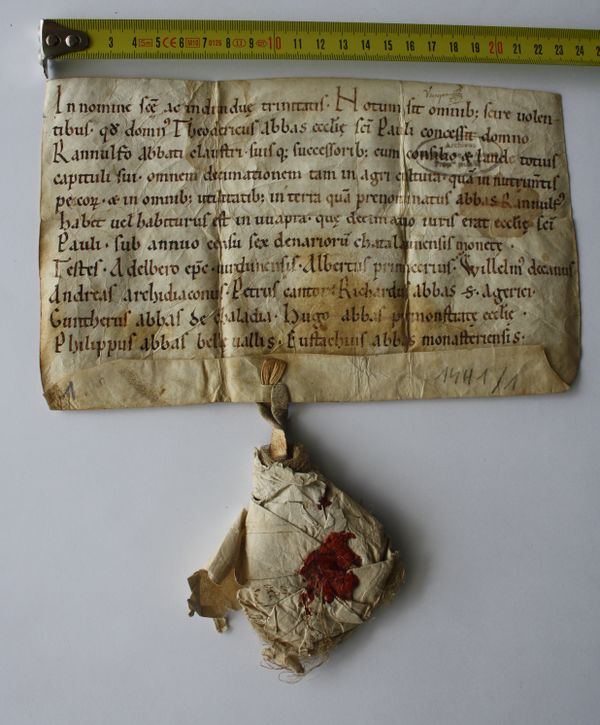 In nomine scę ac individuę trinitatis. Notum sit omnib; scire volen-
tibus. qđ domn' Theodericus abbas ecclię sci Pauli concessit domno
Rannulfo abbati claustri. suisq; successorib; cum consilio & laude totius
capituli sui. omnem decimationem tam in agri cultura. quā in nutrimtis
pecor, & in omnib; utilitatib; in terra quā prenominatus abbas Rannulf'
habet vel habiturus est in quę decimatio iuris erat ecclię sci
Pauli. sub annuo censu sex denariorū monetę.
Testes. Adelbero epc virdunensis. Albertus primicerius. Willelm' decanus
Andreas archidiaconus. Petrus cantor. Richardus abbas S. Agerici.
Guntherus abbas de chaladia. Hugo abbas ecclię.
Philippus abbas belle vallis. Eustachius abbas monasteriensis.
1
1441/1
3 4 5 6 7 8 9 10 11 12 13 14 15 16 17 18 19 20 21 22 23 24